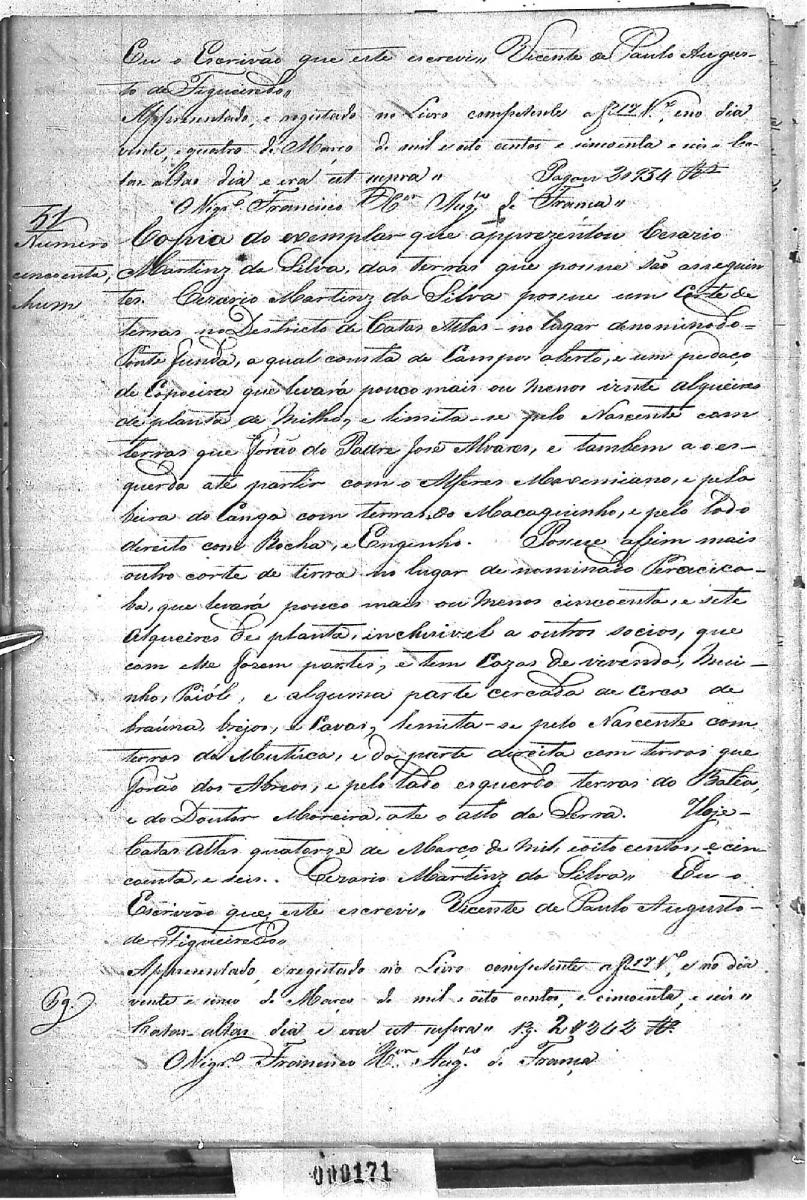 Eu o Escrivão que este escrevi, Vicente de Paulo Augus-
to de Figueiredo,,
Appresentado, e registado no Livro competente a f 17 Vº, e no dia
vinte, e quatro de Março de mil e oito centos e cincoenta e seis Ca-
tas altas dia e era ut supra,, Pagou 2$934 Rs
O Vigrº Francisco Xer Augto de França,,
51
Numero
cincoenta,
hum
Copia do exemplar que apprezentou Cesario
Martinz da Silva, das terras que posue são as seguin
tes. Cezario Martinz da Silva posue um Corte de
terras no Destricto de Catas Altas no lugar denominado=
Ponte funda, a qual consta de Campos aberto, e um pedaço
de Capoeira que levará pouco mais ou menos vinte alqueires
de planta de Milho, e limita-se pelo Nascente com
terras que forão do Padre José Alvares, e tambem a o es-
querda até partir com o Alferes Maxemiano, e pela
beira do Canga com terras do Macaquinho, e pelo lado
direito com Rocha, e Engenho. Posue afim mais
outro corte de terra no lugar de nominado Peracica-
ba, que levará pouco mais ou menos cincoenta, e sete
Alqueires de planta, inclusivel a outros socios, que
com elle forem partes, e tem Cazas de vivenda, Mui-
nho, Paiól, e alguma parte cercada de Cerca de
braúna, brejos, e Cavas, limita-se pelo Nascente com
terras da Mutuca, e da parte direita com terras que
forão dos Abreos, e pelo lado esquerdo terras do Baléa,
e do Doutor Moreira, até o alto da Serra. Hoje
Catas Altas quatorze de Março de mil, e oito centos, e cin
coenta, e seis. Cezario Martinz da Silva,, Eu o
Escrivão que este escrevi,, Vicente de Paulo Augusto-
de Figueiredo,,
Appresentado, e registado no Livro competente a f 17 Vº, e no dia
vente e cinco de Março de mil e oito centos, e cincoenta, e seis,,
Catas-altas dia e era ut supra,, pg. 2$242 Rs.
Pg
O Vigrº Francisco Xer Augto de França
000171